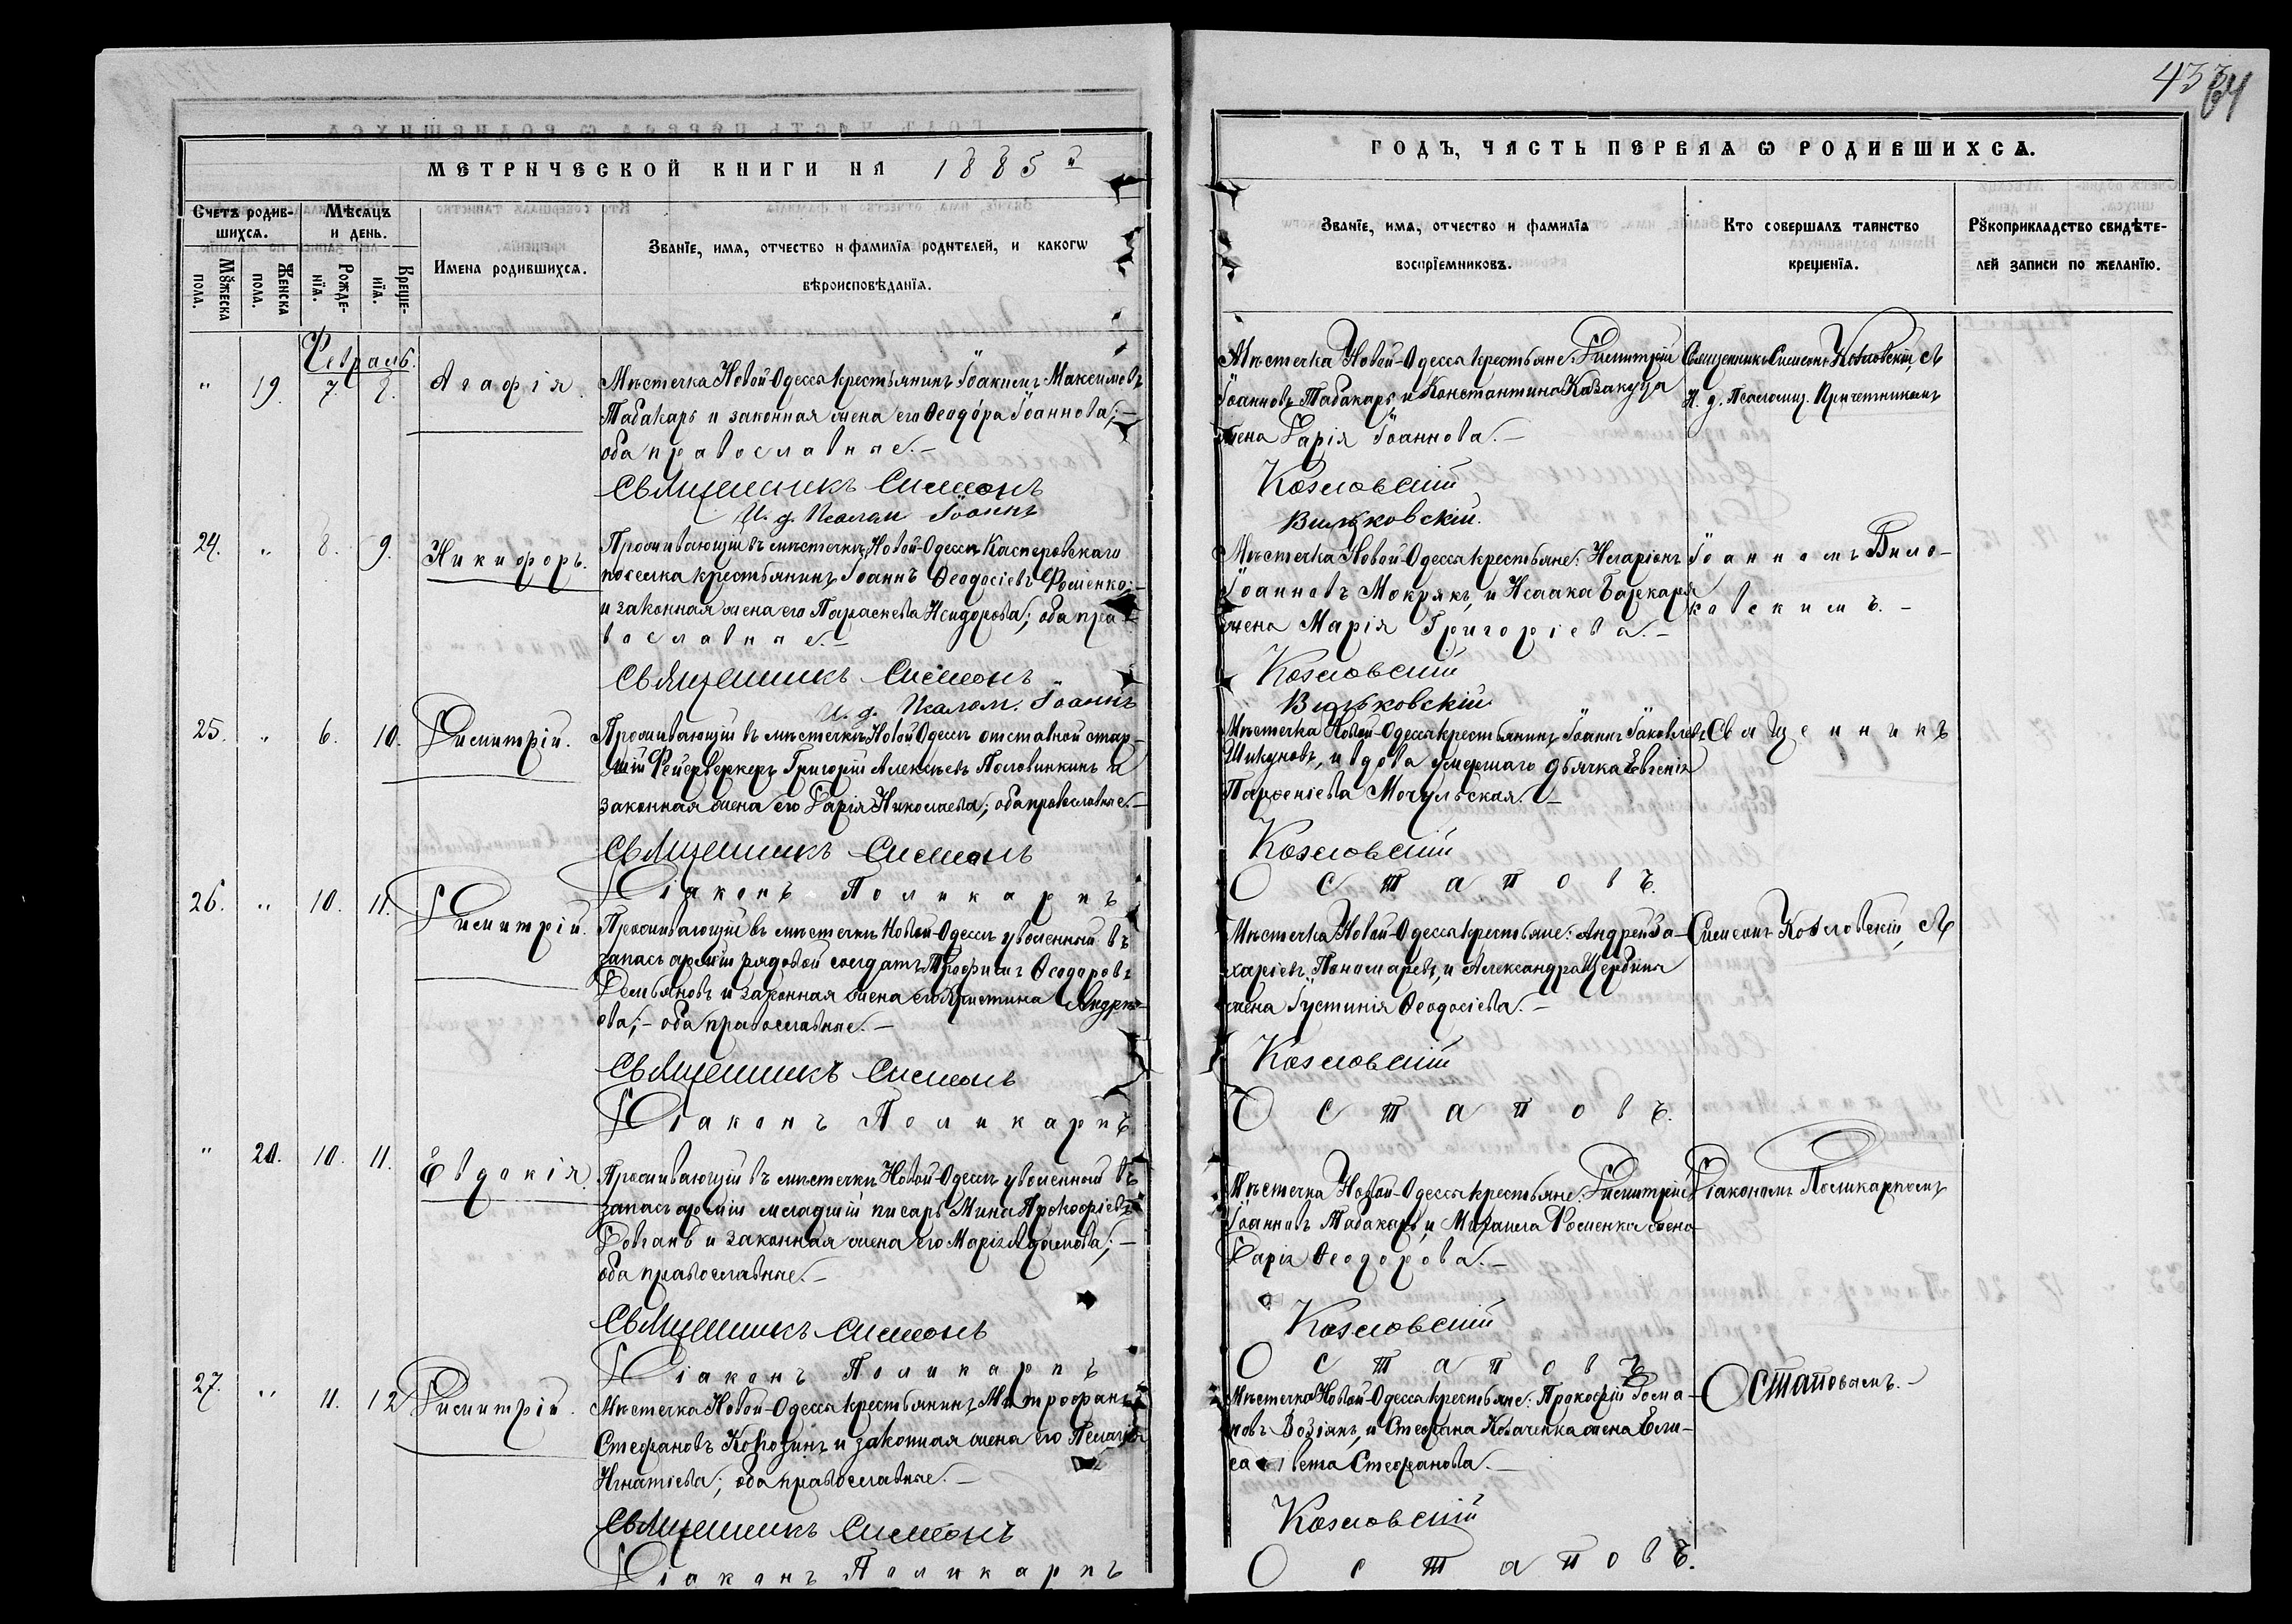 433
64
МЕТРИЧЕСКОЙ КНИГИ НА 1885й
Счетъ родив-
шихся.
Мѣсяцъ
и день.
Мужеска
пола.
Женска
пола.
Рожде-
нія.
Креще-
нія.
Имена родившихся.
Званіе, имя, отчество и фамилія родителей, и какогѡ
вѣроисповѣданія.
Февраль.
" 19. 7. 8. Агафія.
Мѣстечка Новой-Одессы крестьянинъ Іоакимъ Максимовъ
Табакарь и законная жена его Ѳеодора Іоаннова;—
оба православные.—
Священникъ Симеонъ
И. д. Псалом Іоаннъ
24. " 8. 9. Никифоръ.
Проживающій въ мѣстечкѣ Новой-Одессѣ Касперовскаго
поселка крестьянинъ Іоаннъ Ѳеодосіевъ Фоменко;
и законная жена его Параскева Исидорова; оба пра-
вославные.—
Священникъ Симеонъ
И. д. Псалом. Іоаннъ
25. " 6. 10. Димитрій.
Проживающій въ мѣстечкѣ Новой Одессѣ отставной стар-
шій Фейерверкеръ Григорій Алексѣевъ Половинкинъ и
законная жена его Дарія Николаева; оба православные.—
Священникъ Симеонъ
Діаконъ Поликарпъ
26. " 10. 11. Димитрій.
Проживающій въ мѣстечкѣ Новой-Одессѣ уволенный въ
запасъ арміи рядовой солдатъ Трофимъ Ѳеодоровъ
Демьяновъ и законная жена его Христина Андре-
ева;— оба православные.—
Священникъ Симеонъ
Діаконъ Поликарпъ
" 20. 10. 11. Евдокія.
Проживающій въ мѣстечкѣ Новой-Одессѣ уволенный въ
запасъ арміи младшій писарь Мина Прокофіевъ
Довгань и законная жена его Марія Адамова;—
оба православные.—
Священникъ Симеонъ
Діаконъ Поликарпъ
27. " 11. 12 Димитрій.
Мѣстечка Новой-Одессы крестьянинъ Митрофанъ
Стефановъ и законная жена его Пелагія
Игнатіева; оба православные.—
Священникъ Симеонъ
Діаконъ Поликарпъ
ГОДЪ, ЧАСТЬ ПЕРВАЯ Ѡ РОДИВШИХСЯ.
Званіе, имя, отчество и фамилія
воспріемниковъ.
Кто совершалъ таинство
крещенія.
Рукоприкладство свидѣте-
лей записи по желанію.
Мѣстечка Новой-Одессы крестьяне: Димитрій
Іоанновъ Табакарь и Константина Казакуца
жена Дарія Іоаннова.—
Козловскій
Вильковскій.
Священникъ Симеонъ Козловскій, съ
И. д. Псаломщ. Причетникомъ
Мѣстечка Новой-Одессы крестьяне: Иларіонъ
Іоанновъ Мокрякъ, и Исаака Баркаря
жена Марія Григоріева.—
Козловскій
Вильковскій
Іоанномъ Виль-
ковскимъ.—
Мѣстечка Новой-Одессы крестьянинъ Іоаннъ Іаковлевъ
Шикуновъ, и вдова умершаго дьячка Евгенія
Парѳеніева Мочульская.—
Козловскій
Остаповъ.
Священникъ
Мѣстечка Новой-Одессы крестьяне: Андрей За-
харіевъ Пономаревъ, и Александра Щербины
жена Іустинія Ѳеодосіева.—
Козловскій
Остаповъ.
Симеонъ Козловскій, съ
Мѣстечка Новой-Одессы крестьяне: Димитрій
Іоанновъ Табакарь, и Михаила Фоменка жена
Дарія Ѳеодорова.—
Козловскій
Остаповъ
Діакономъ Поликарпомъ
Мѣстечка Новой-Одессы крестьяне: Прокофій Рома-
новъ Возіянъ, и Стефана Ковачевка жена Ели-
савета Стефанова.—
Козловскій
Остаповъ.
Остаповымъ.—